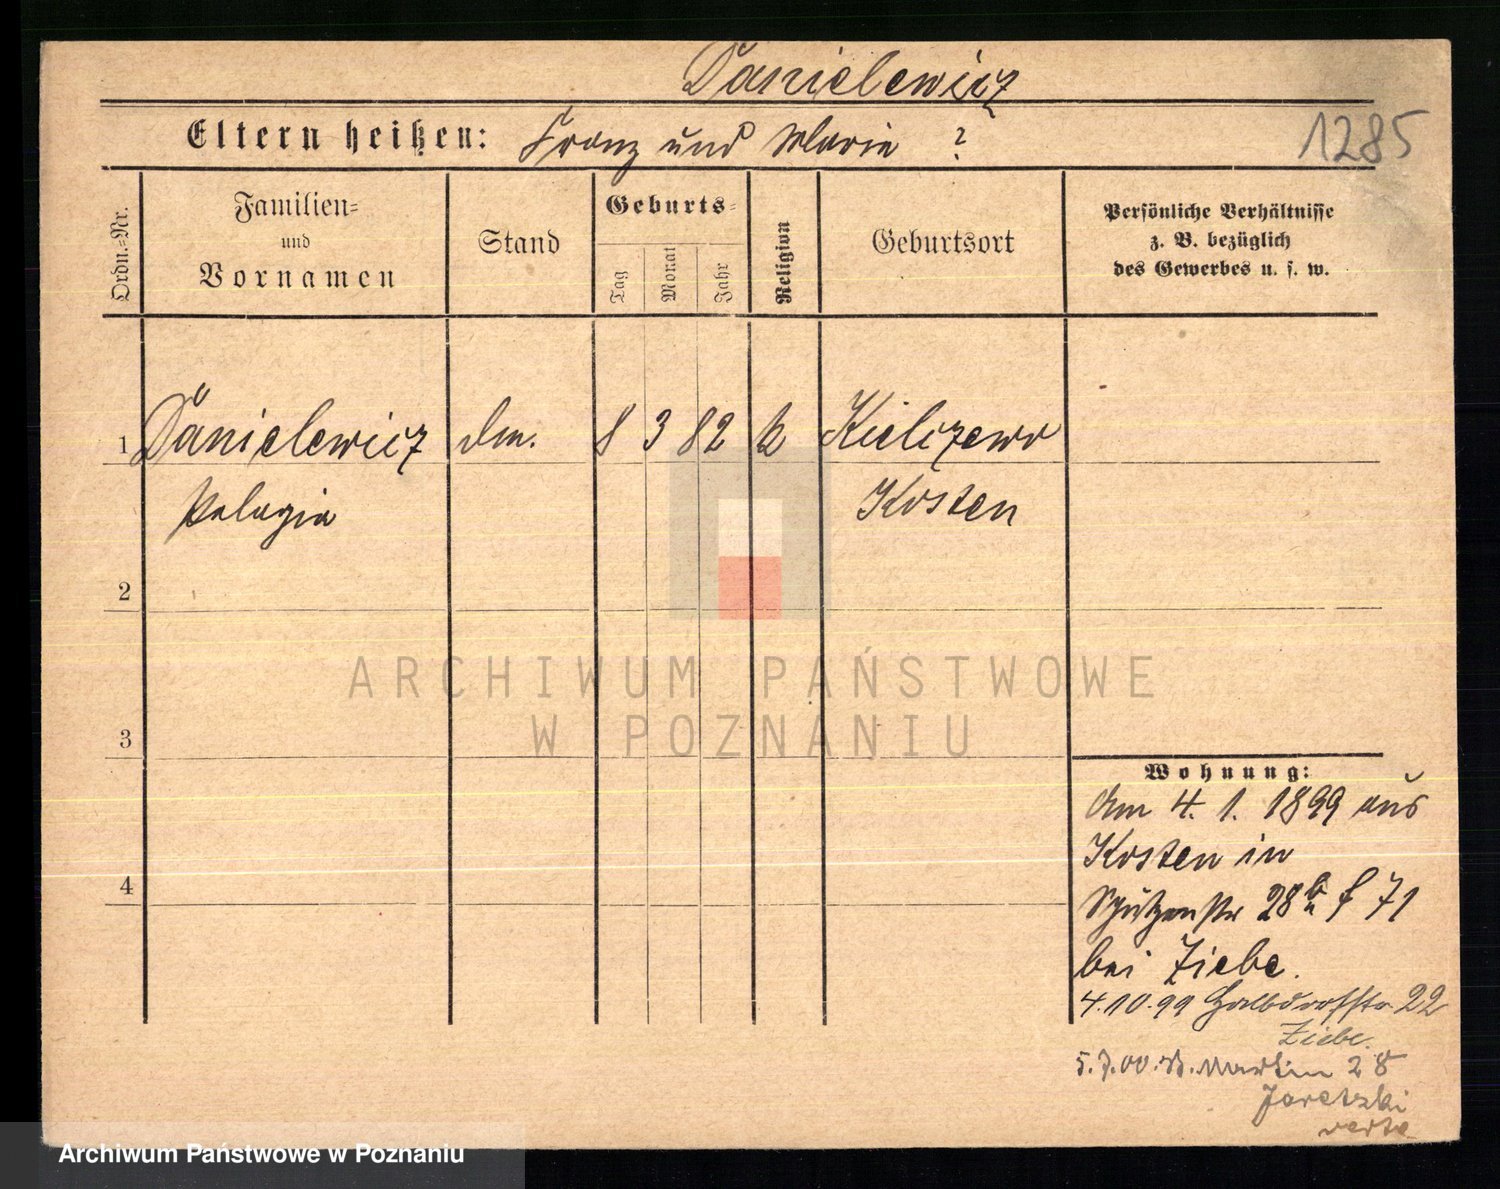 Danielewicz
Eltern heißen: Franz und Maria ?
1285
Ordn.=Nr.
Familien=
und
Vornamen
Stand
Geburts=
Tag
Monat
Jahr
Religion
Geburtsort
Persönliche Verhältnisse
z. B. bezüglich
des Gewerbes u. s. w.
1 Danielewicz 8 3 82 k Kielczewo
Pelagia Kosten
2
3
4
ARCHIWUM PAŃSTWOWE
W POZNANIU
Wohnung:
Am 4. 1. 1899 aus
Kosten in
Schützenstr 28 71
bei Ziebe.
4.10.99 Halbdorfstr. 22
Ziebe.
5.7.00. St. Martin 28
Jaretzki
verte
Archiwum Państwowe w Poznaniu